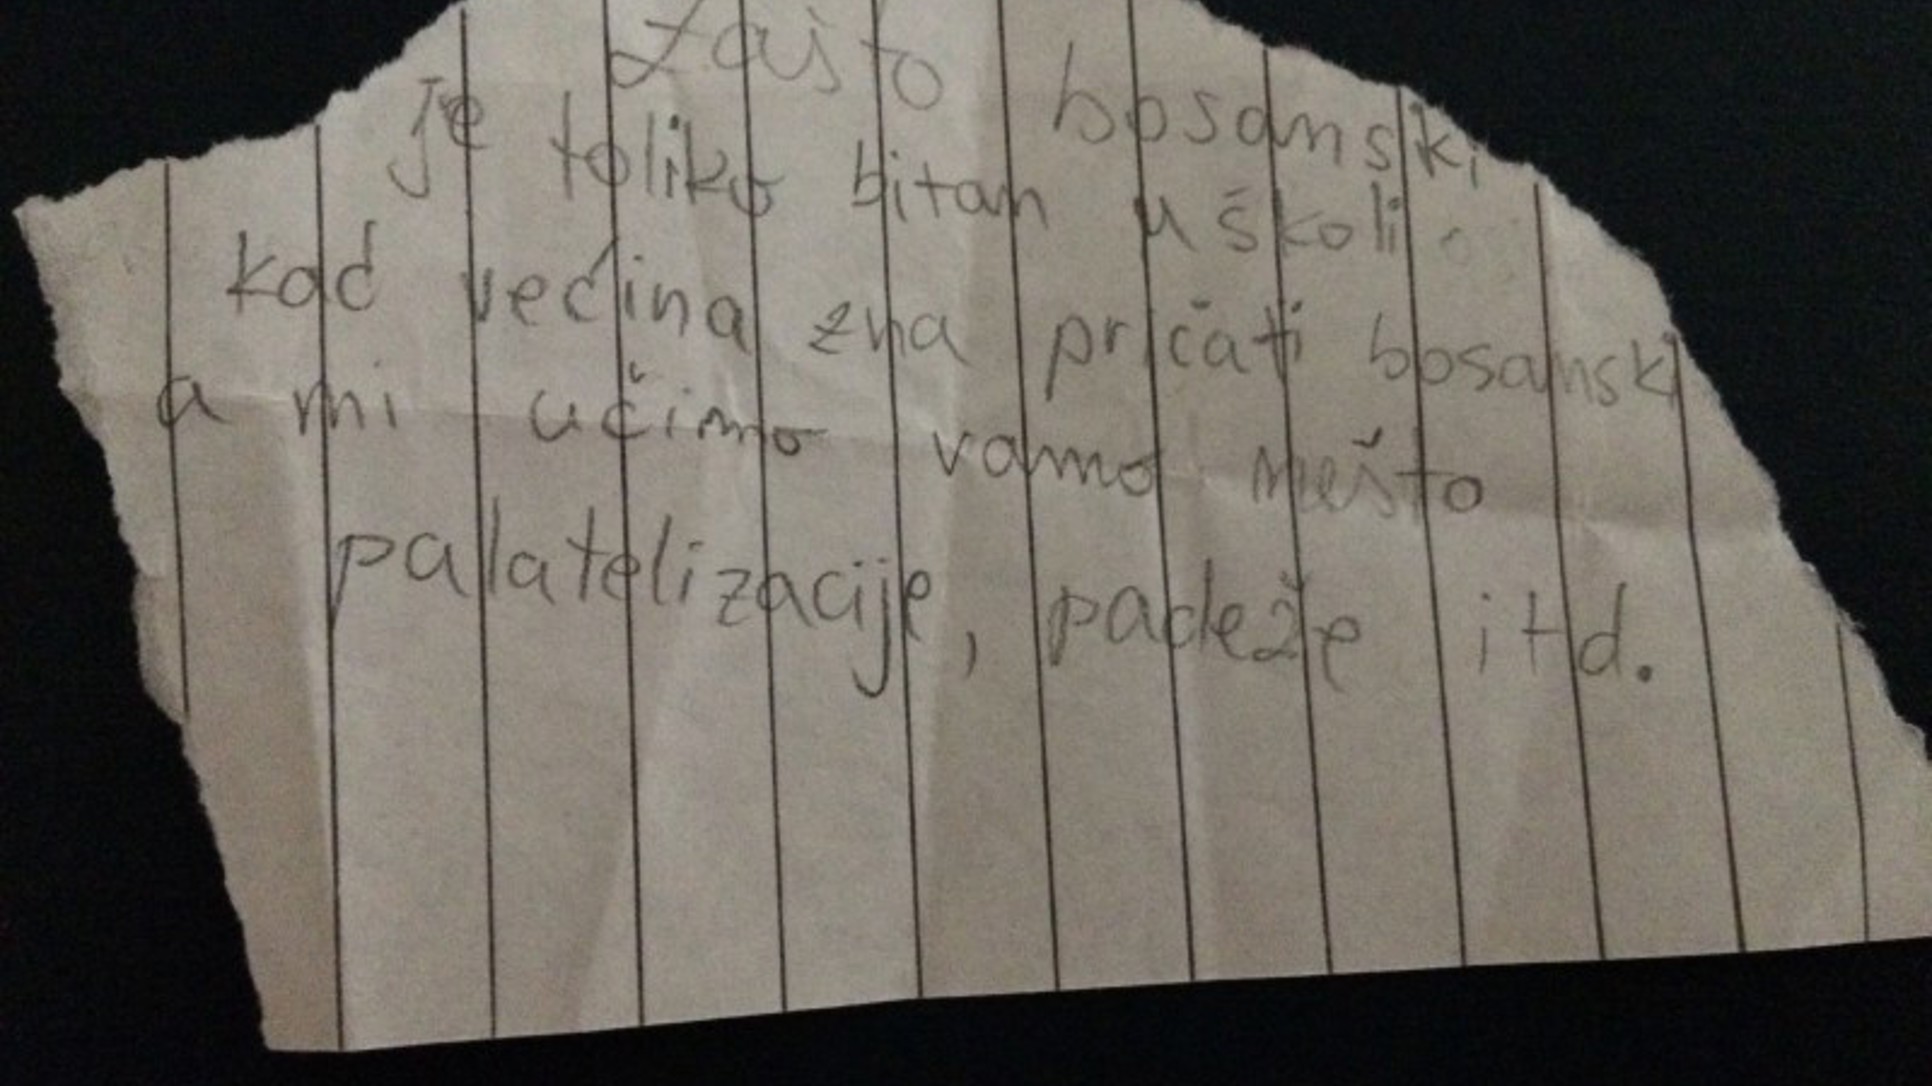 Zašto bosanski
je toliko bitan u školi
kad većina zna pričati bosanski
a mi učimo vamo nešto
palatelizacije, padeže itd.